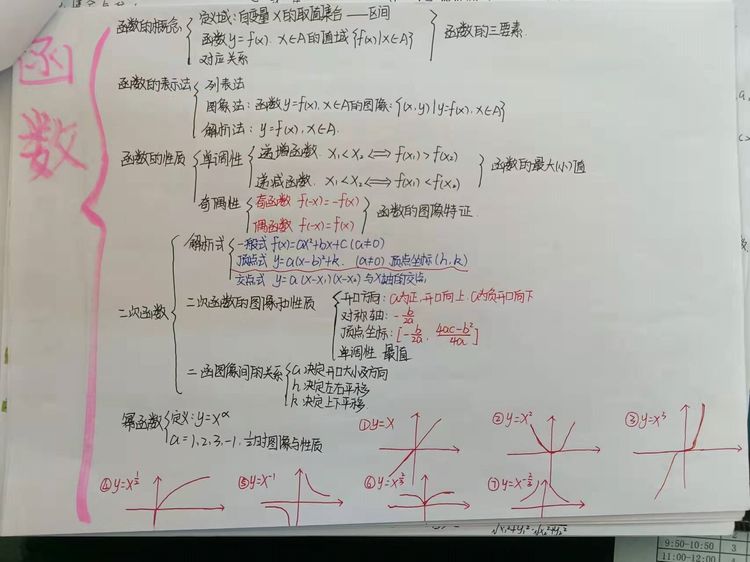 函数
函数的概念
定义域:自变量X的取值集合——区间
函数y=f(x). x∈A的值域{f(x)|x∈A}
对应关系
函数的三要素.
函数的表示法
列表法
图象法:函数y=f(x), x∈A的图像:{(x,y)|y=f(x), x∈A}
解析法:y=f(x), x∈A.
函数的性质
单调性
递增函数. X₁<X₂⟺f(x₁)>f(x₂)
递减函数. X₁<X₂⟺f(x₁)<f(x₂)
函数的最大(小)值
奇偶性
奇函数 f(-x)=-f(x)
偶函数 f(-x)=f(x)
函数的图像特征.
二次函数
解析式
一般式 f(x)=ax²+bx+c (a≠0)
顶点式 y=a(x-b)²+k. (a≠0) 顶点坐标(h,k)
交点式 y=a(x-x₁)(x-x₂)与X轴的交点,
二次函数的图像和性质
开口方向:a为正,开口向上. a为负开口向下
对称轴:-b/2a
顶点坐标:[-b/2a, 4ac-b²/4a]
单调性 最值
二函图像间的关系
a 决定开口大小及方向
h 决定左右平移
k 决定上下平移
幂函数
定义:y=X^α
a=1,2,3,-1,½时图像与性质
①y=X
②y=X²
③y=X³
④y=X^½
⑤y=X⁻¹
⑥y=X^⅔
⑦y=X^-⅔
9:50-10:50
3
11:00-12:00